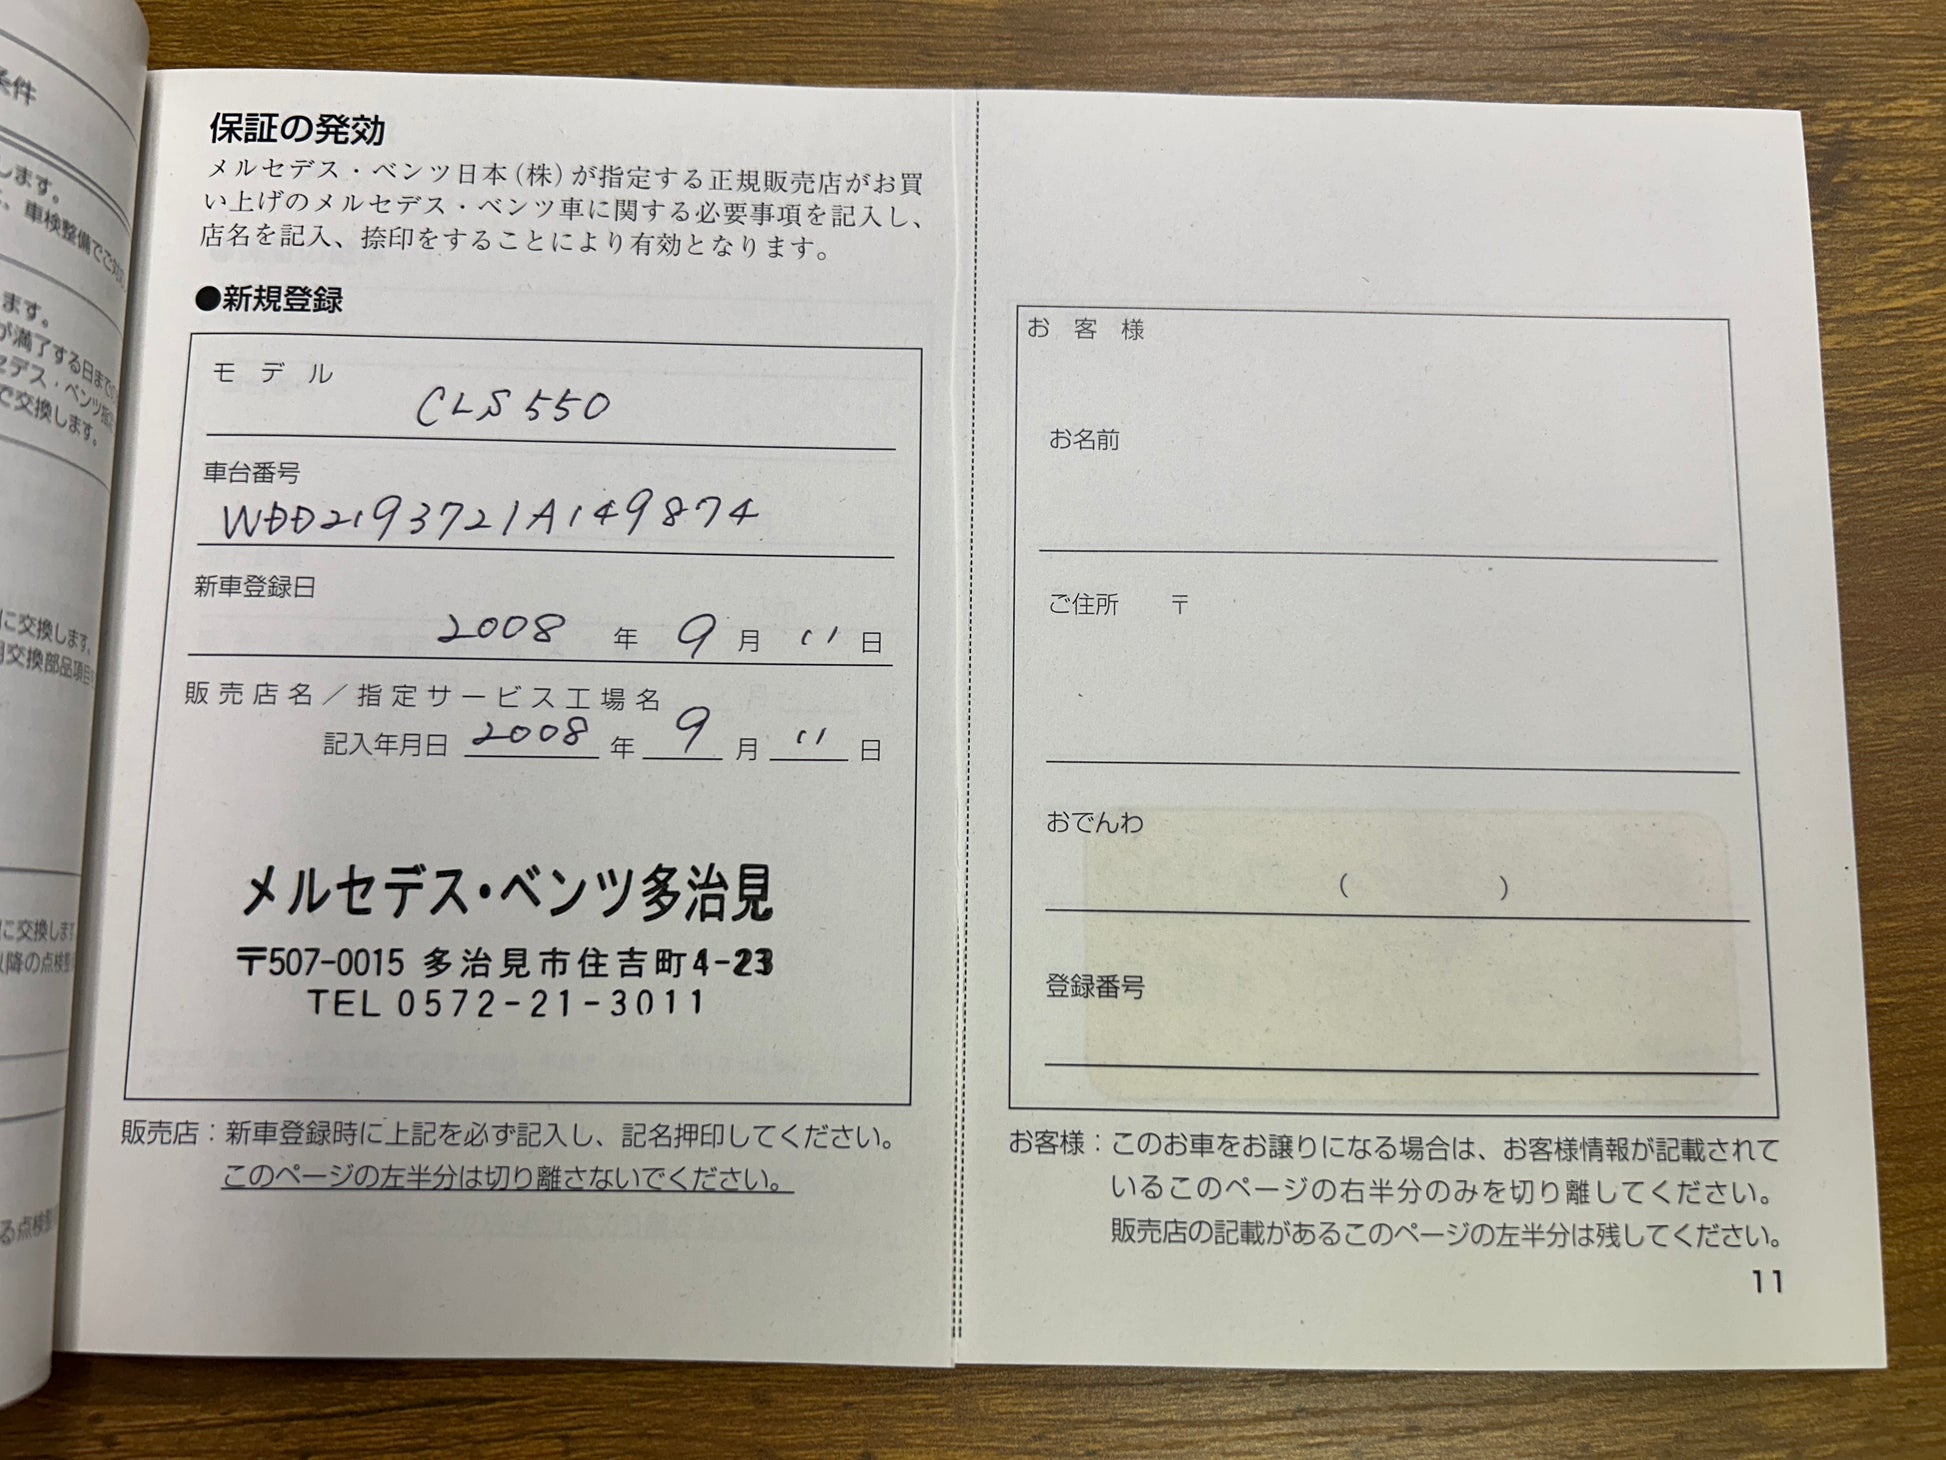 条件
します。
、車検整備でご
ます。
が満了する日まで
セデス・ベンツ指
で交換します。
に交換します。
交換部品項目
に交換します
以降の点検
る点検
保証の発効
メルセデス・ベンツ日本(株)が指定する正規販売店がお買
い上げのメルセデス・ベンツ車に関する必要事項を記入し、
店名を記入、捺印をすることにより有効となります。
●新規登録
モデル
CLS550
車台番号
WDD2193721A149874
新車登録日
2008 年 9 月 11 日
販売店名／指定サービス工場名
記入年月日 2008 年 9 月 11 日
メルセデス・ベンツ多治見
〒507-0015 多治見市住吉町4-23
TEL 0572-21-3011
販売店：新車登録時に上記を必ず記入し、記名押印してください。
このページの左半分は切り離さないでください。
お客様
お名前
ご住所 〒
おでんわ
( )
登録番号
お客様：このお車をお譲りになる場合は、お客様情報が記載されて
いるこのページの右半分のみを切り離してください。
販売店の記載があるこのページの左半分は残してください。
11